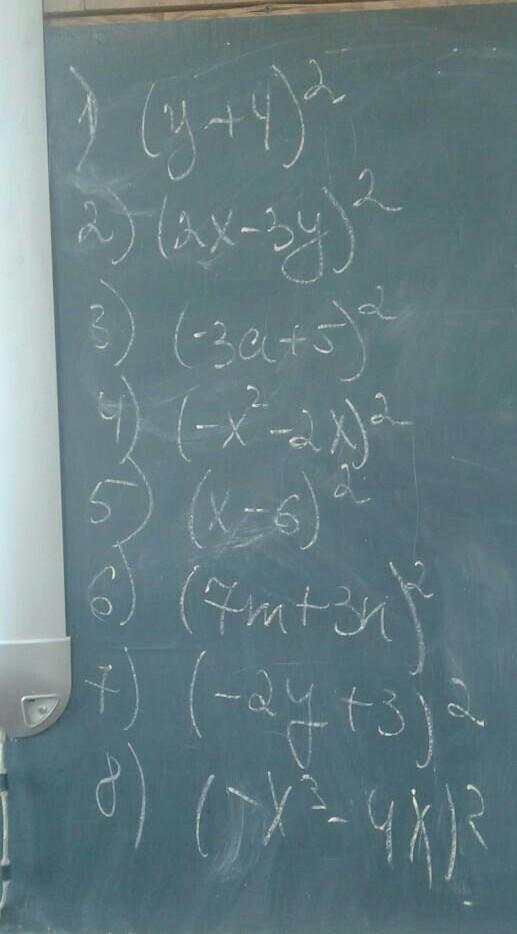 1) (y+4)²
2) (2x-3y)²
3) (-3a+5)²
4) (-x²-2x)²
5) (x-6)²
6) (7m+3n)²
7) (-2y+3)²
8) (-x³-4x)²